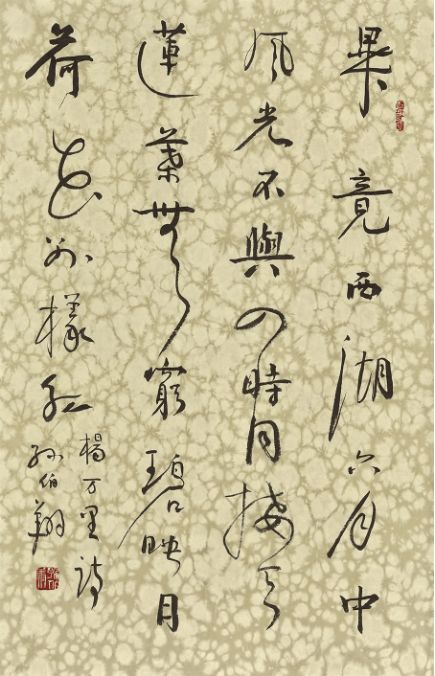 畢竟西湖六月中
風光不與四時同接天
蓮葉無窮碧映日
荷花別樣紅
楊万里詩
孫伯翔